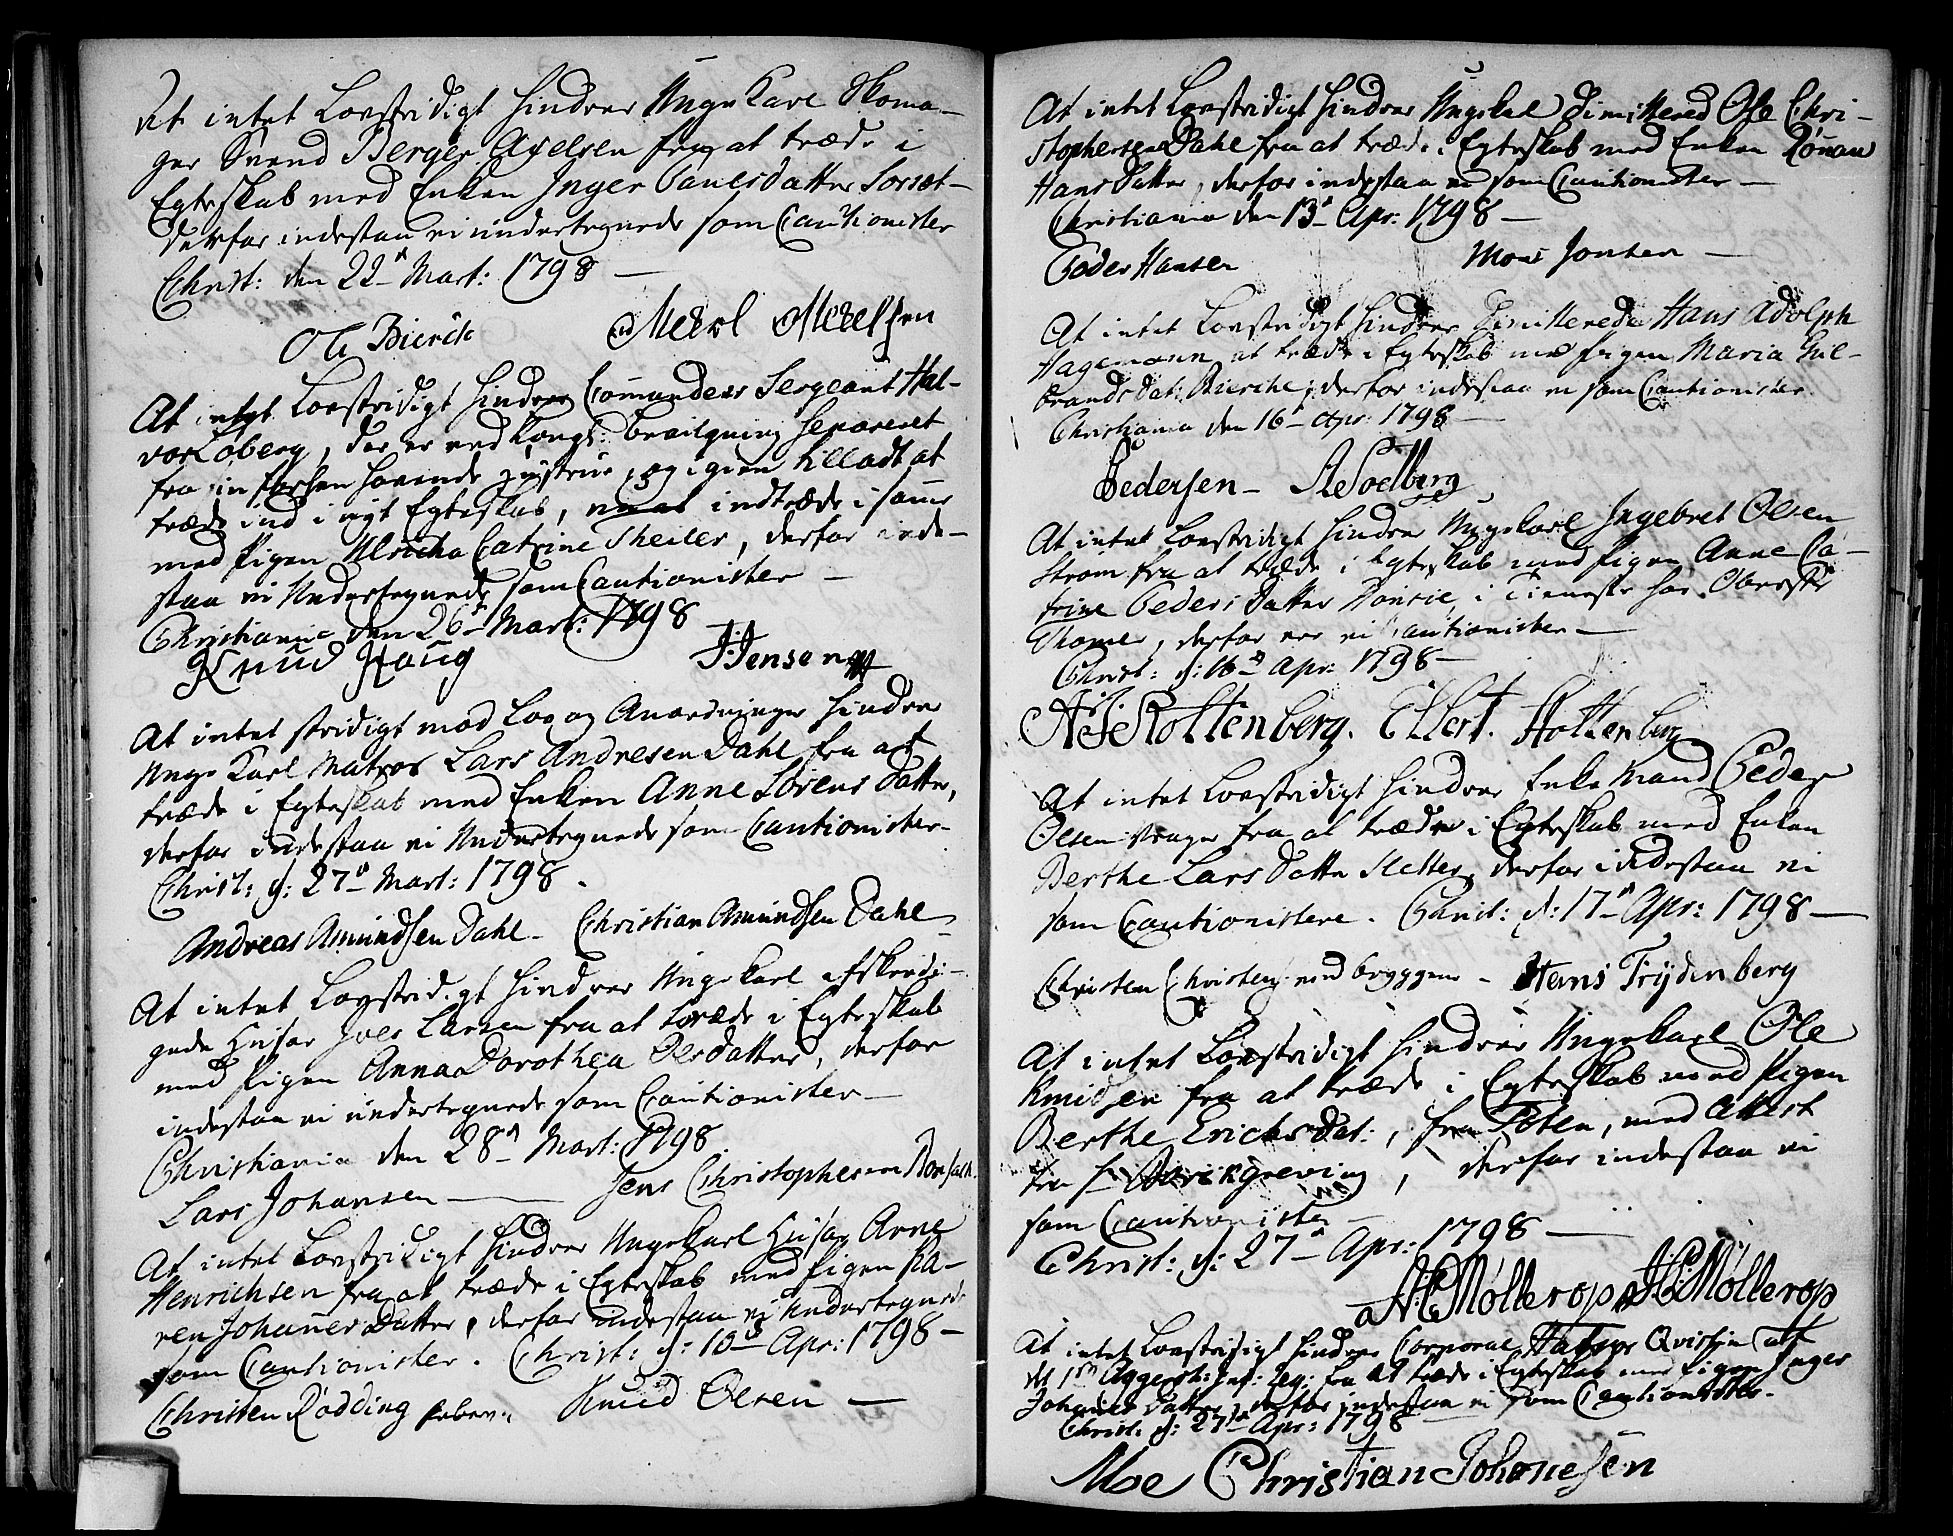 At intet Lovstridigt hindrer Unge Karl Skoma-
ger Svend Berger Axelsen fra at træde i
Egteskab med Enken Inger Pauelsdatter
derfor indestaa vi undertegnede som Cautionister
Christ: den 22de Mart: 1798 —
Ole Bierck Merel Merelsen
At intet Lovstridigt hindrer Commandeer Sergeant Hal-
vor Loberg, der er ved Kongl: bevilgning separeret
fra sin forhen havende Hustrue, og igien tilladt at
træde ind i nyt Egteskab, indtræde i samme
med Pigen Ulricha Catrine Sheiler, derfor inde-
staa vi Undertegnede som Cautionister —
Christiania den 26de Mart: 1798
Knud Haug J. Jensen
At intet stridigt mod Lov og Anordninger hindrer
Unge Karl Matros Lars Andresen Dahl fra at
træde i Egteskab med Enken Anne Sørens Datter,
derfor indestaa vi Undertegnede som Cautionister
Christ: d: 27de Mart: 1798.
Andreas Amundsen Dahl — Christian Amundsen Dahl
At intet Lovstridigt hindrer Ungekarl afskedi-
gede Husar Joes Larsen fra at træde i Egteskab
med Pigen Anna Dorothea Olsdatter, derfor
indestaa vi undertegnede som Cautionister —
Christiania den 28de Mart: 1798.
Lars Johansen — Jens Christophersen
At intet Lovstridigt hindrer Ungekarl Husar Arne
Henrichsen fra at træde i Egteskab med Pigen Ka-
ren Johannes Datter, derfor indestaa vi Undertegnede
som Cautionister. Christ: d: 10de Apr: 1798 —
Christen Rødding Knud Olsen —
At intet Lovstridigt hindrer Ungekarl Dimittered Ole Chri-
stophersen Dahl fra at træde i Egteskab med Enken Rønau
Hans Datter, derfor indestaa vi som Cautionister —
Christiania den 13de Apr: 1798 —
Peder Hansen Mons Jonsen —
At intet Lovstridigt hindrer Dimitterede Hans Adolph
Hagemann at træde i Egteskab med Pigen Maria Gul-
brands Dat: Bierche, derfor indestaa vi som Cautionister
Christiania den 16de Apr: 1798 —
Pedersen — A Sodberg
At intet Lovstridigt hindrer Ungekarl Ingebret Olsen
Strøm fra at træde i Egteskab med Pigen Anne Ca-
trine Peders Datter i Tieneste hos Oberste
Thomes, derfor ere vi Cautionister —
Christ: d: 16de Apr: 1798 —
A J Rottenberg. Ellert. Hottenberg
At intet Lovstridigt hindrer Enke Mand Peder
Olsen fra at træde i Egteskab med Enken
Berthe Lars Datter Sletter, derfor indestaa vi
som Cautionistere. Christ: d: 17de Apr: 1798 —
Christen Christens: ved bryggen — Hans Frydenberg
At intet Lovstridigt hindrer Ungekarl Ole
Knudsen fra at træde i Egteskab med Pigen
Berthe Erichsdat:, fra Toten, med Attest
fra, derfor indestaa vi
som Cautionister —
Christ: d: 27de Apr: 1798 —
A C Møllerop H C Møllerop
At intet Lovstridigt hindrer Corporal Qvist af
det 1ste Aggersh: Inf: Reg: fra at træde i Egteskab med Pigen Inger
Johannes Datter, derfor indestaa vi som Cautionister.
Christ: d: 27de Apr: 1798 —
Moe Christian Johanesen